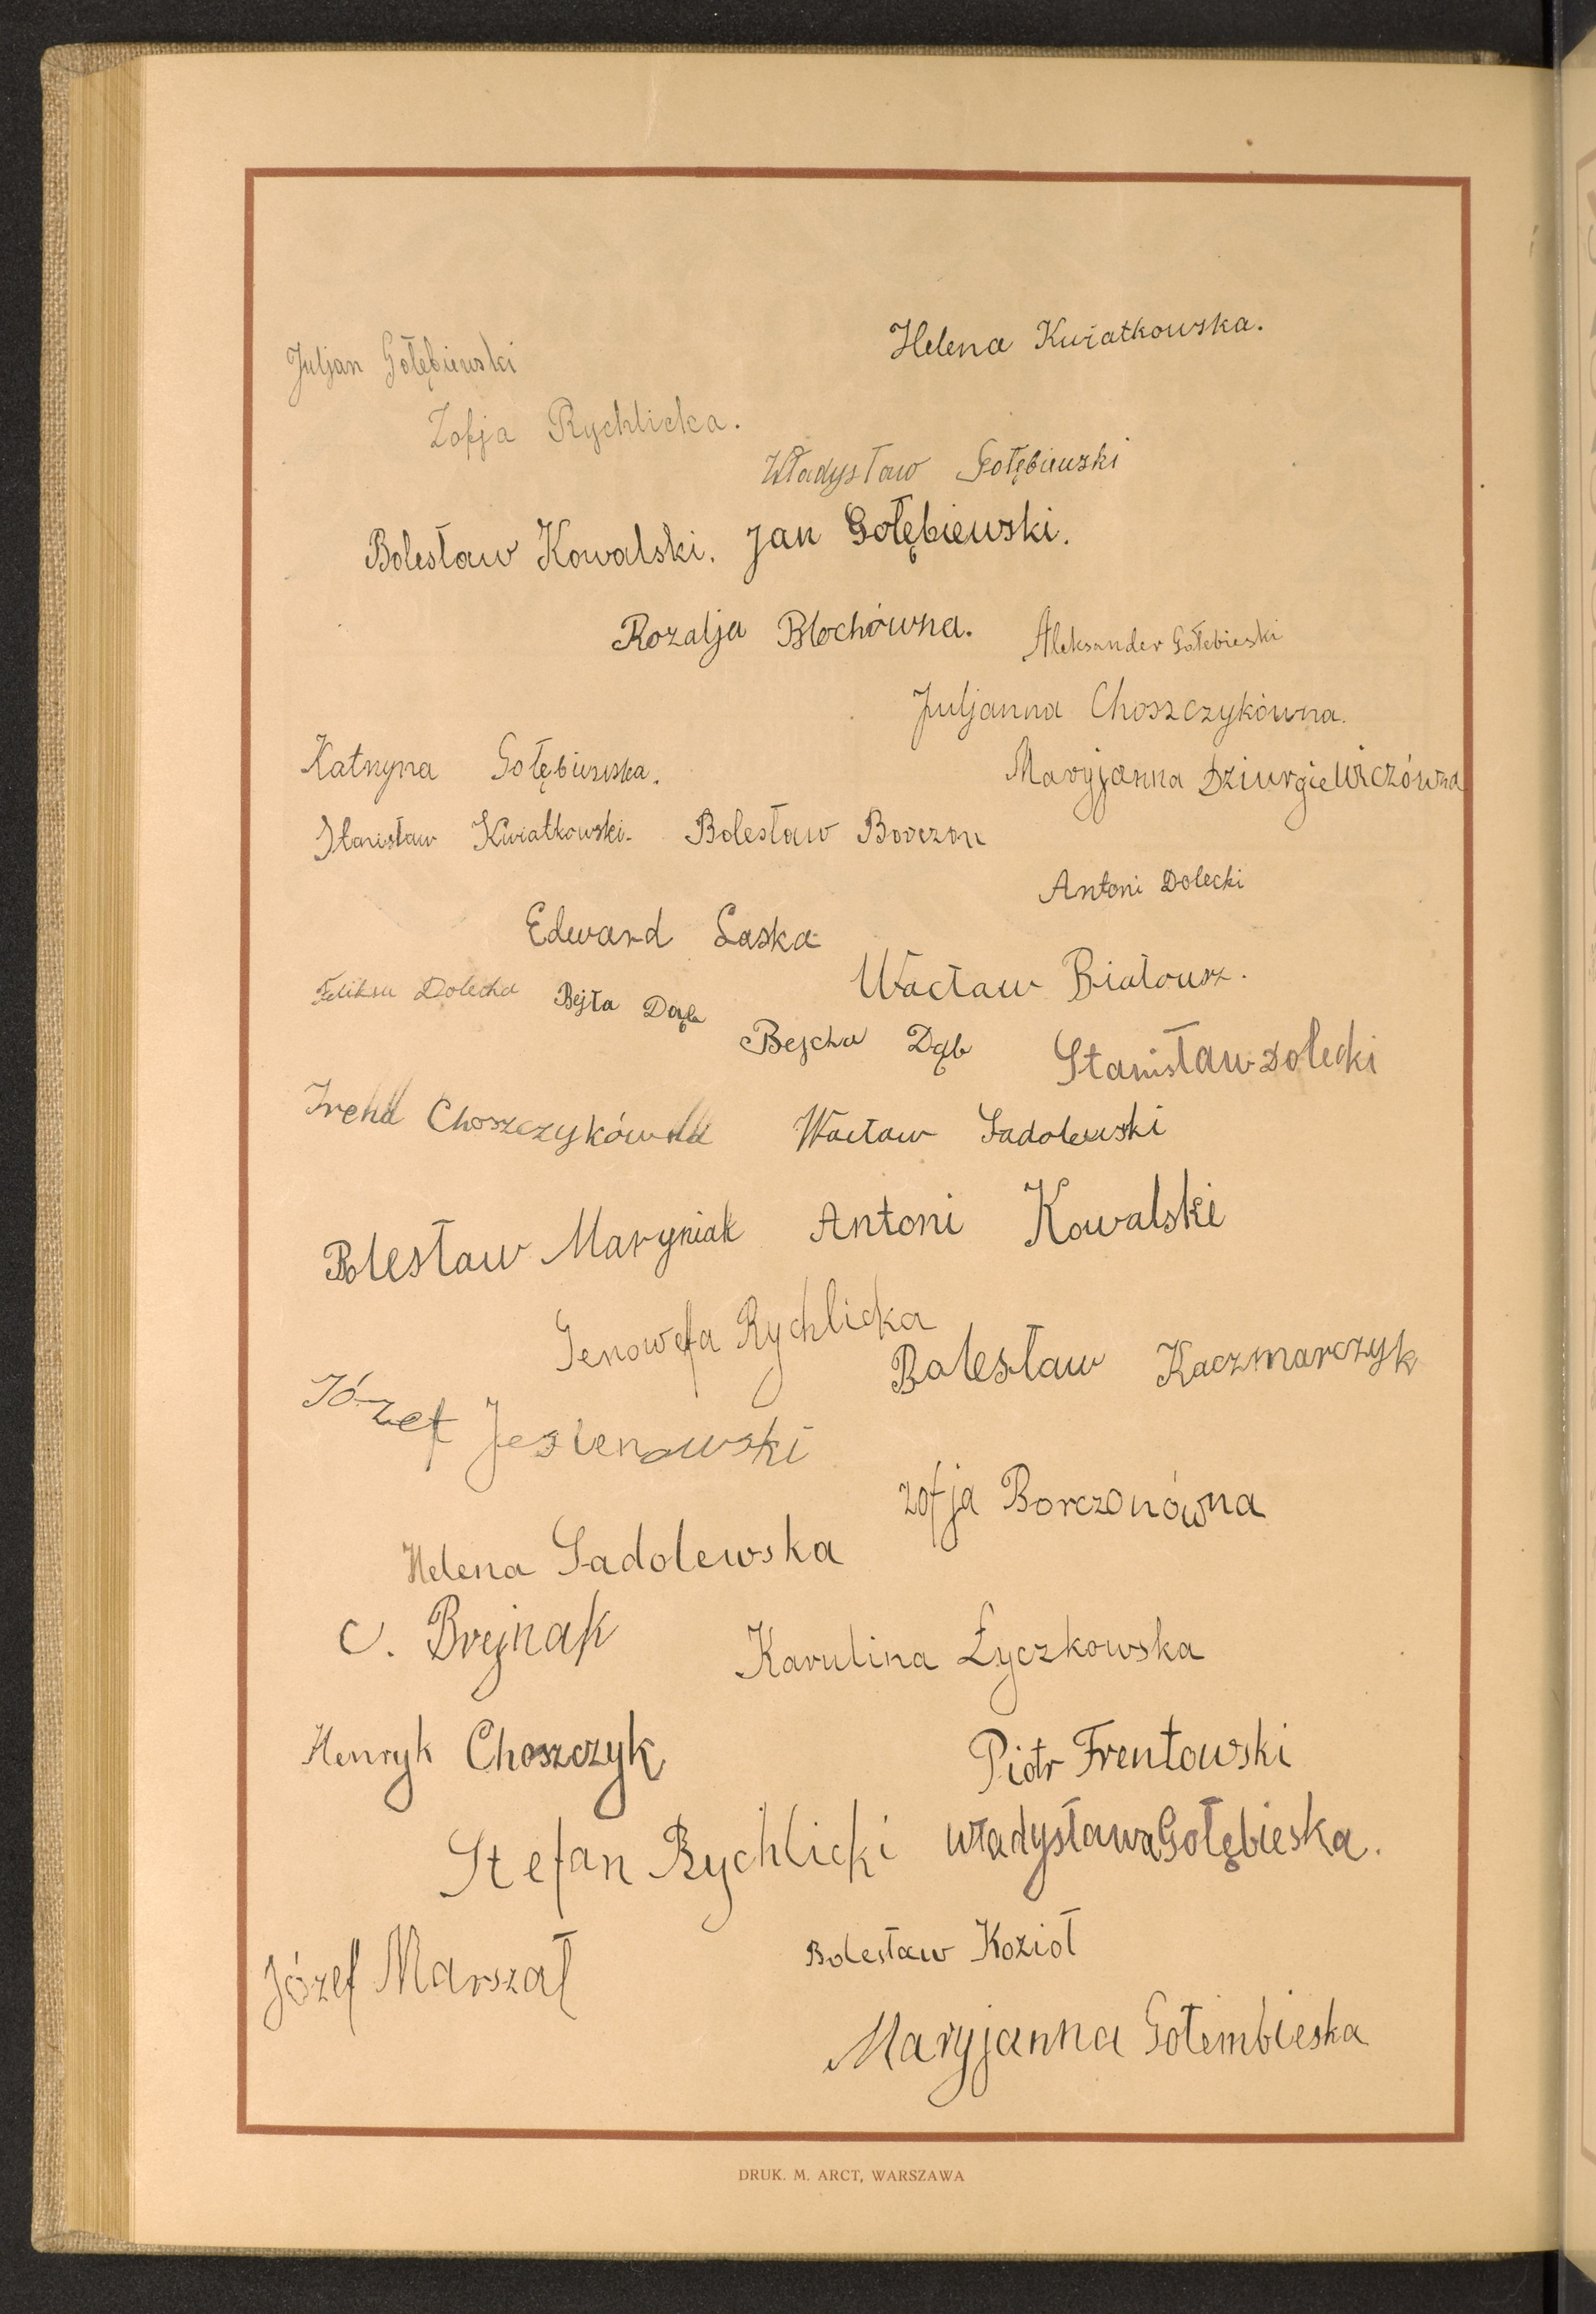 Helena Kwiatkowska.
Juljan Gołębiewski
Zofja Rychlicka.
Władysław Gołębiewski
Bolesław Kowalski. Jan Gołębiewski.
Rozalja Blochówna. Aleksander Gołebieski
Juljanna Choszczykówna.
Katnyna Gołębiewska. Maryjanna Dziurgielewiczówna
Stanisław Kwiatkowski. Bolesław Borczon
Antoni Dolecki
Edward Laska
Wacław Białousz.
Feliksa Dolecka Bejła Dąb
Bejcha Dąb Stanisław Dolecki
Irena Choszczykówna Wacław Sadolewski
Bolesław Maryniak Antoni Kowalski
Genowefa Rychlicka
Bolesław Kaczmarczyk
Józef Jesienowski
Zofja Borczonówna
Helena Sadolewska
C. Brejnak Karulina Łyczkowska
Henryk Choszczyk Piotr Frentowski
Stefan Rychlicki Władysława Gołębieska.
Józef Marszał Bolesław Kozioł
Maryjanna Gołembieska
DRUK. M. ARCT, WARSZAWA